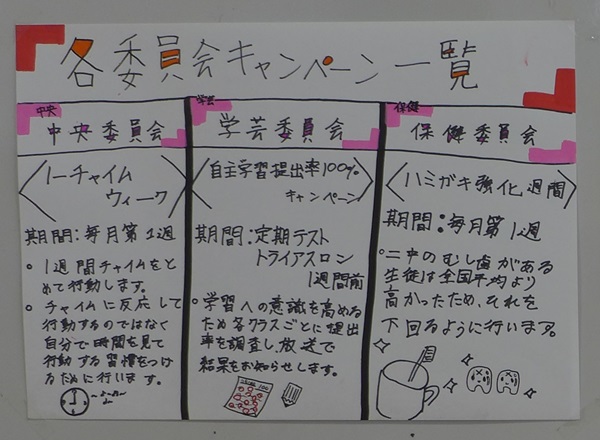 各委員会キャンペーン一覧
中央
中央委員会
ノーチャイム
ウィーク
期間:毎月第1週
・1週間チャイムをと
めて行動します。
・チャイムに反応して
行動するのではなく
自分で時間を見て
行動する習慣をつけ
るために行います。
学芸
学芸委員会
自主学習提出率100%
キャンペーン
期間:定期テスト
トライアスロン
1週間前
・学習への意識を高める
ため各クラスごとに提出
率を調査し、放送で
結果をお知らせします。
保健
保健委員会
ハミガキ強化週間
期間:毎月第1週
・二中のむし歯がある
生徒は全国平均より
高かったため、それを
下回るように行います。